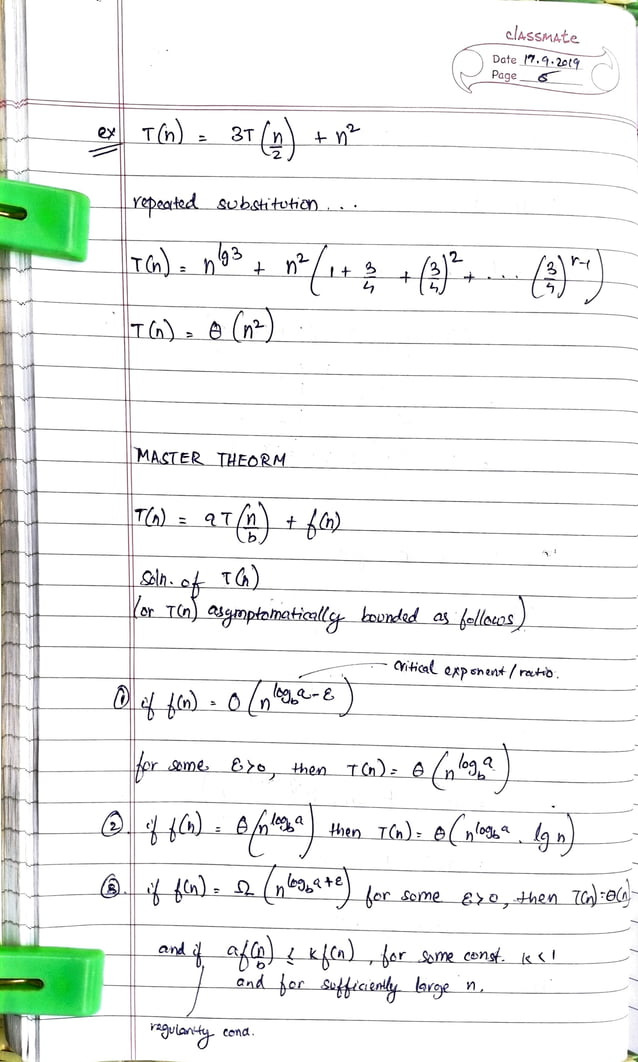 classmate
Date 17.9.2019
Page 5
ex T(n) = 3T(n/2) + n²
repeated substitution...
T(n) = n^lg3 + n²(1 + 3/4 + (3/4)² + .... (3/4)^r-1)
T(n) = θ(n²)
MASTER THEORM
T(n) = aT(n/b) + f(n)
Soln. of T(n)
(or T(n) asymptomatically bounded as follows)
critical exponent/ratio.
① if f(n) = O(n^log_b a-ε)
for some ε>0, then T(n) = θ(n^log_b a)
② if f(n) = θ(n^log_b a) then T(n) = θ(n^log_b a . lg n)
③ if f(n) = Ω(n^log_b a+ε) for some ε>0, then T(n)=θ(n)
and if af(n/b) ≤ kf(n), for some const. k<1
and for sufficiently large n.
regularity cond.